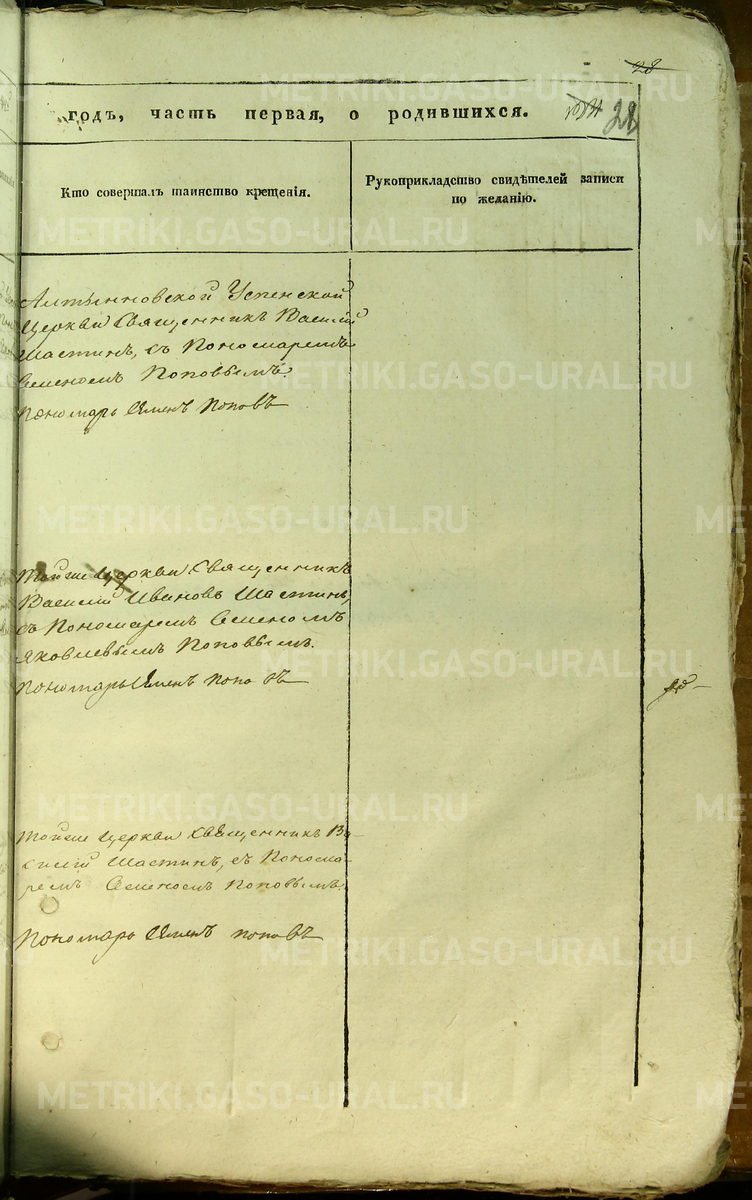 28
28
годъ, часть первая, о родившихся.
Кто совершалъ таинство крещенія.
Рукоприкладство свидѣтелей записи
по желанію.
Алтынновской Успенской
Церкви Священникъ Василій
Шастинъ, съ Пономаремъ
Семеномъ Поповымъ.
Пономарь Семенъ Поповъ
Тойже Церкви Священникъ
Василій Ивановъ Шастинъ,
съ Пономаремъ Семеномъ
Яковлевымъ Поповымъ.
Пономарь Семенъ Поповъ
Тойже Церкви Священникъ Ва-
силій Шастинъ, съ Понома-
ремъ Семеномъ Поповымъ.
Пономарь Семенъ Поповъ
METRIKI.GASO-URAL.RU